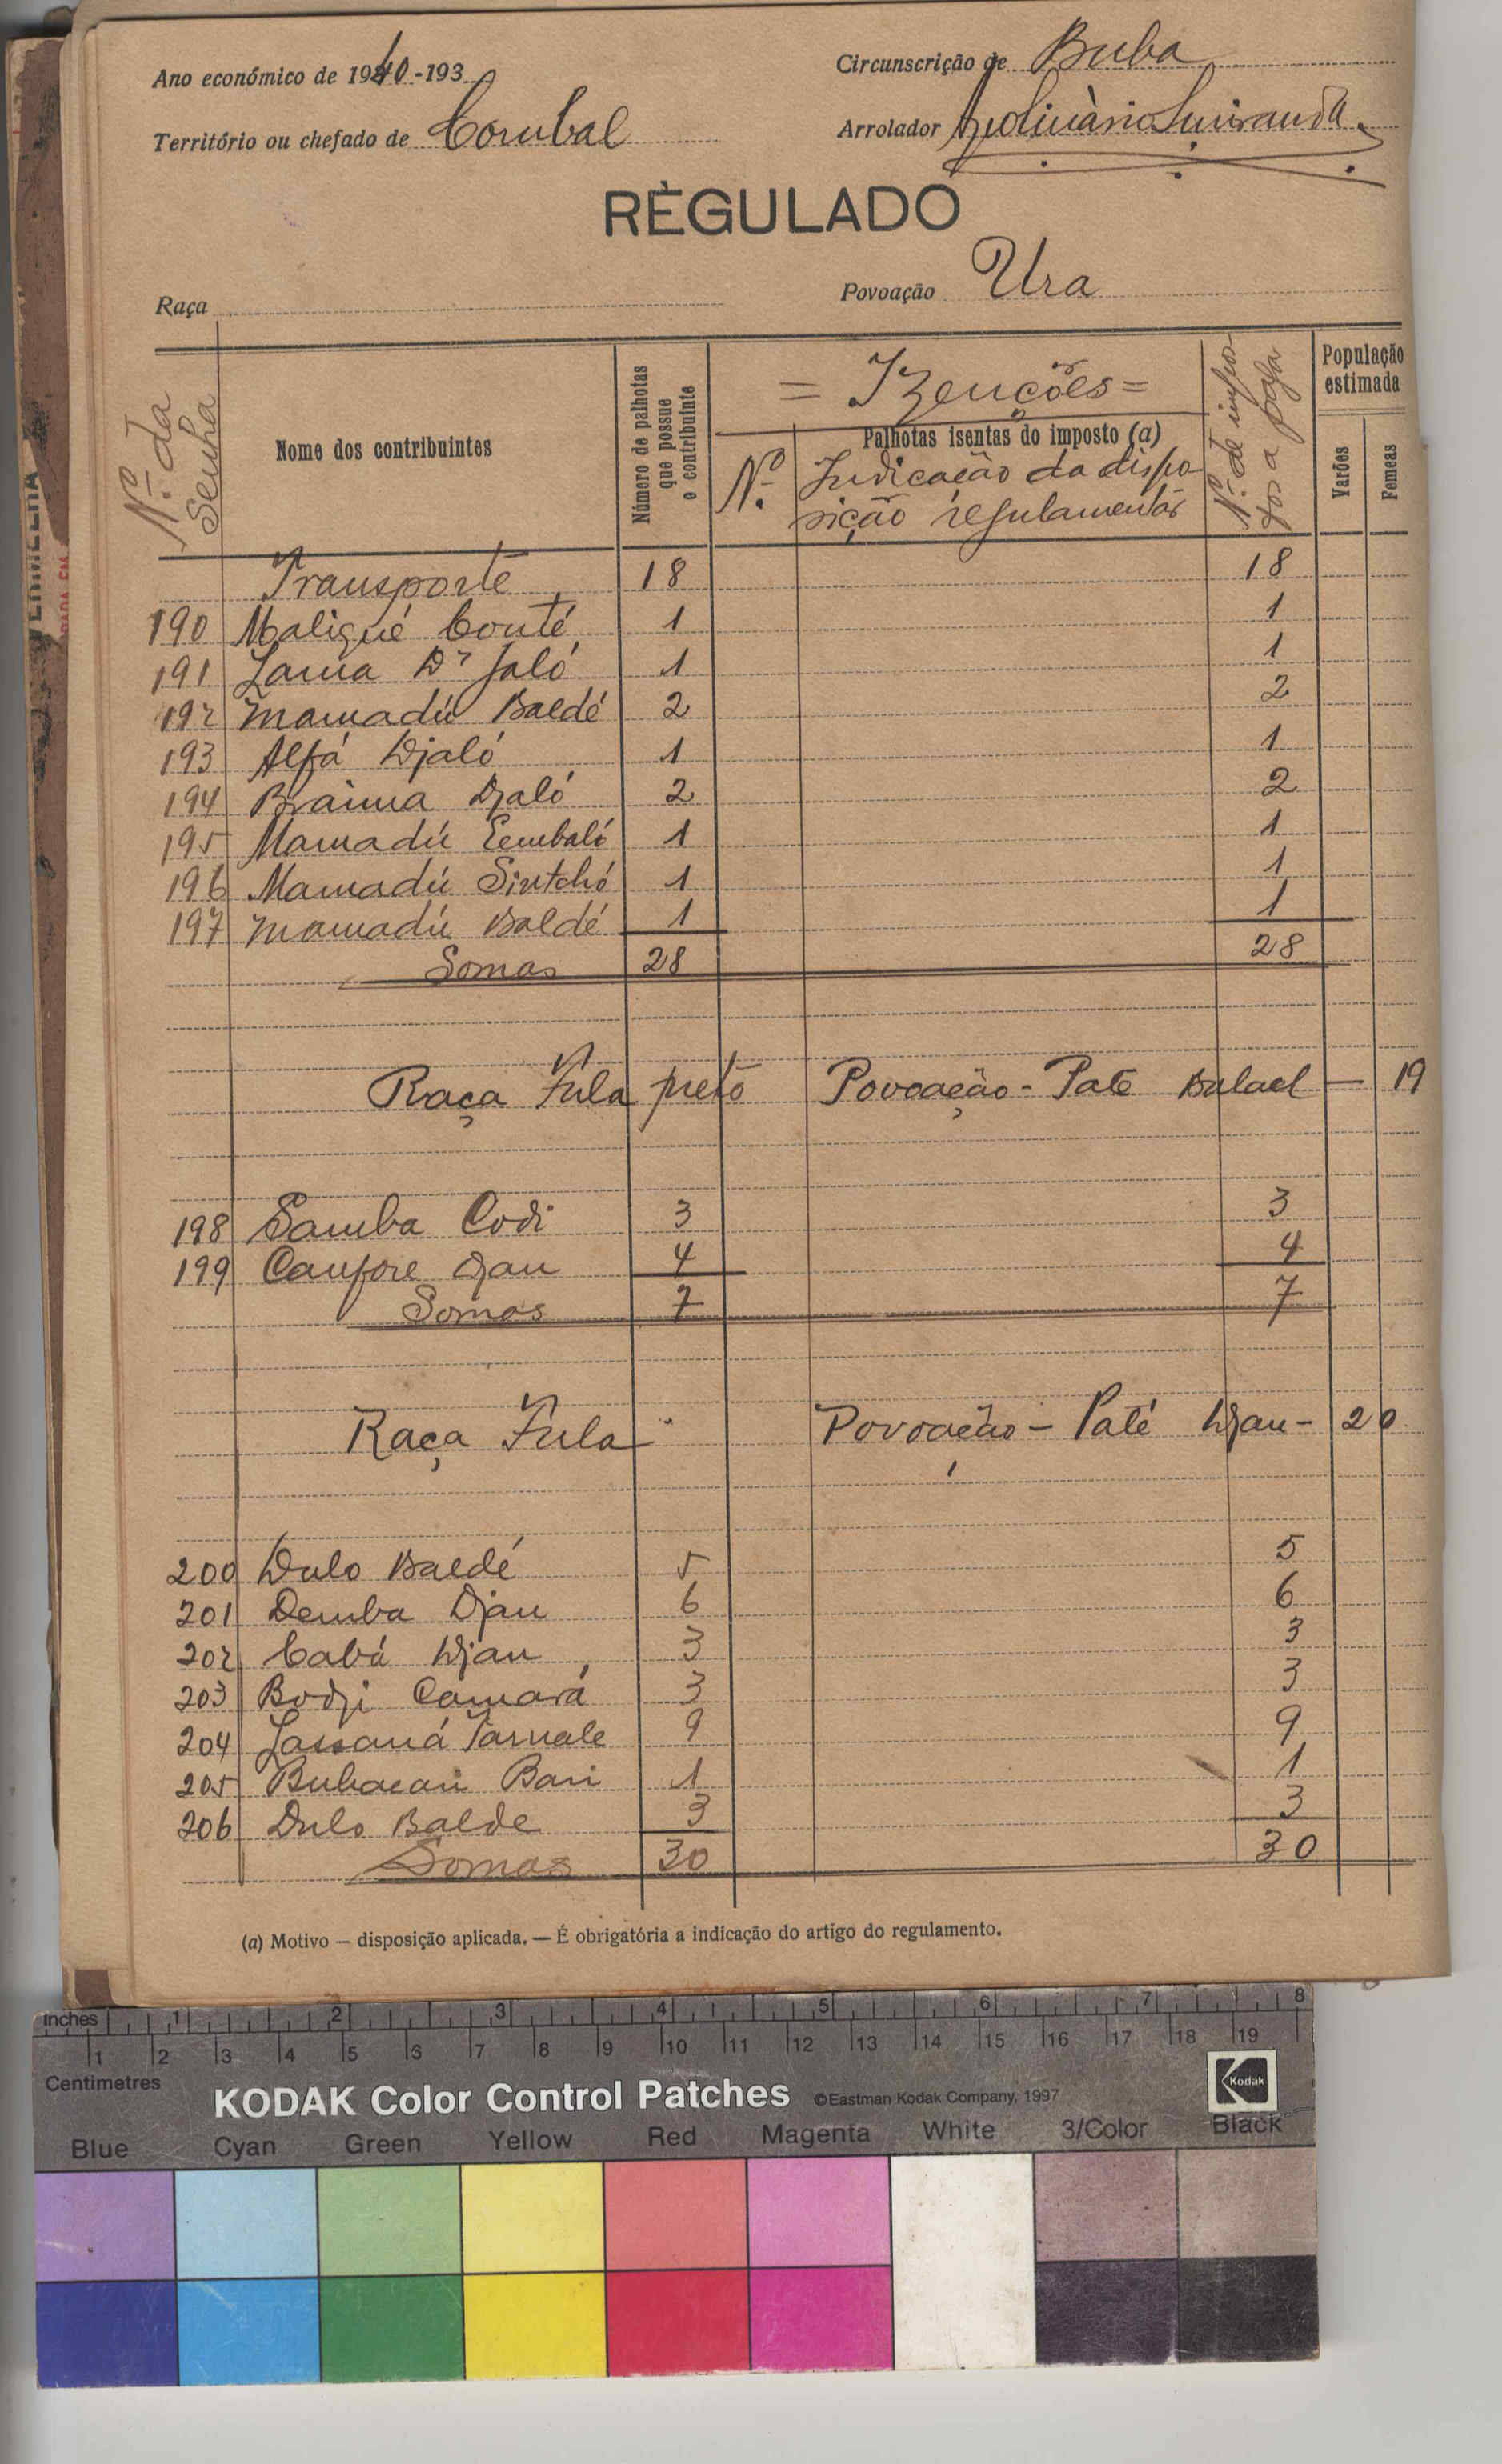 Ano económico de 1940-193
Circunscrição de Buba
Território ou chefado de Corubal
Arrolador
RÈGULADO
Raça
Povoação Ura
Nº. da Senha
Nome dos contribuintes
Número de palhotas que possue o contribuinte
= Izenções =
Palhotas isentas do imposto (a)
Nº.
Indicação da dispo-
sição regulamentár
Nº. de impos-
tos a pagar
População estimada
Varões
Femeas
Transporte 18 18
190 Maligué Conté 1 1
191 Lama Dr Jaló 1 1
192 Mamadú Baldé 2 2
193 Alfá Djaló 1 1
194 Braima Djaló 2 2
195 Mamadú Embaló 1 1
196 Mamadú Sintchó 1 1
197 Mamadú Baldé 1 1
Somas 28 28
Raça Fula preto Povoação - Pate Balael — 19
198 Samba Codi 3 3
199 Canfore Djau 4 4
Somas 7 7
Raça Fula Povoação - Paté Djau - 20
200 Dulo Baldé 5 5
201 Demba Djau 6 6
202 Cabá Djau 3 3
203 Bodji Camará 3 3
204 Lassaná 9 9
205 Bubacari Bari 1 1
206 Dulo Balde 3 3
Somas 30 30
(a) Motivo — disposição aplicada. — É obrigatória a indicação do artigo do regulamento.
Inches 1 2 3 4 5 6 7 8
1 2 3 4 5 6 7 8 9 10 11 12 13 14 15 16 17 18 19
Centimetres
KODAK Color Control Patches ©Eastman Kodak Company, 1997 Kodak
Blue Cyan Green Yellow Red Magenta White 3/Color Black